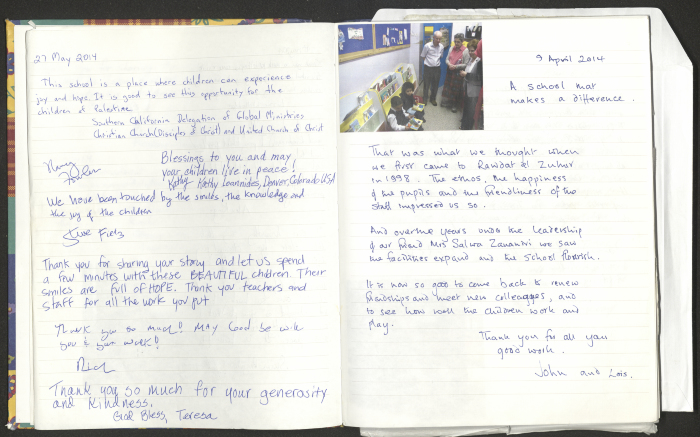 27 May 2014
This school is a place where children can experience
joy and hope. It is good to see this opportunity for the
children of Palestine
Southern California Delegation of Global Ministries
Christian Church (Disciples of Christ) and United Church of Christ
Blessings to you and may
your children live in peace!
Kathy Kathy Ioannides, Denver, Colorado USA
We have been touched by the smiles, the knowledge and
the joy of the children
Thank you for sharing your story and let us spend
a few minutes with these BEAUTIFUL children. Their
smiles are full of HOPE. Thank you teachers and
staff for all the work you put
Thank you so much! May God be with
you & your work!
Thank you so much for your generosity
and kindness.
God Bless, Teresa
9 April 2014
A school that
makes a difference.
That was what we thought when
we first came to Rawdat el Zuhur
in 1998. The ethos, the happiness
of the pupils and the friendliness of the
staff impressed us so.
And over the years under the leadership
of our friend Mrs Salwa Zananiri we saw
the facilities expand and the school flourish.
It is now so good to come back to renew
friendships and meet new colleagues, and
to see how well the children work and
play.
Thank you for all your
good work.
John and Lois.